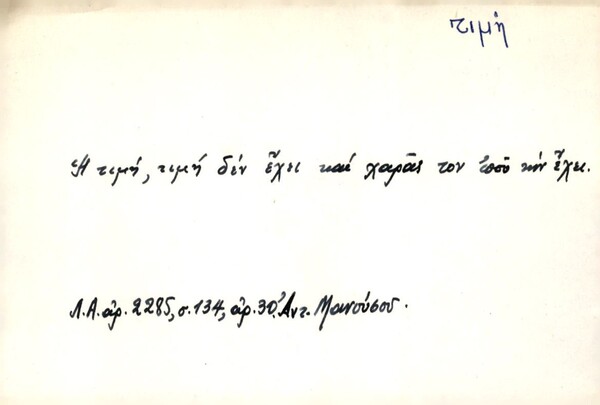 τιμή
Ἡ τιμή, τιμή δέν ἔχει καί χαρᾶς τον ὁποῦ τήν ἔχει.
Λ.Α. ἀρ. 2285, σ. 134, ἀρ. 30. Ἀντ. Μανούσου.